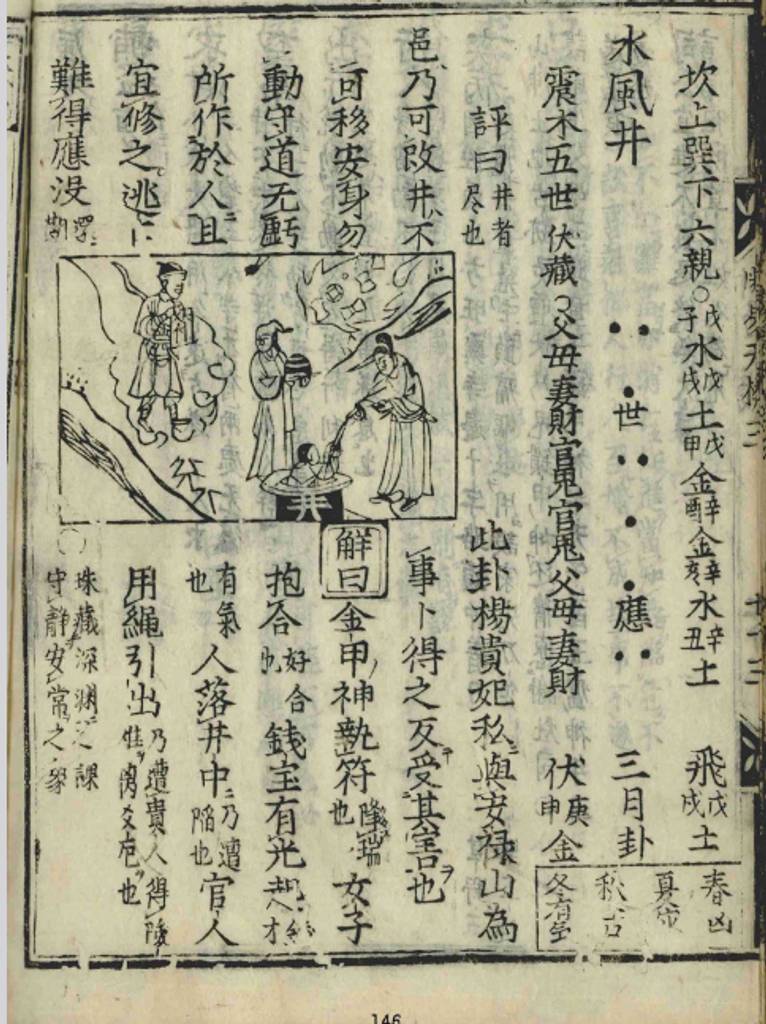 坎上巽下六親○戊子水戊戌土戊甲金辛酉金辛亥水辛丑土 飛戊戌土
水風井 世 應 三月卦
震木五世伏藏○父母妻財官鬼官鬼父母妻財 伏庚申金
春凶
夏
秋吉
冬有
此卦楊貴妃私與安祿山為
事卜得之反受其害也
評曰井者尽也
邑乃可改井不
可移安身勿
動守道无虧
所作於人且
宜修之逃亡
難得應没
井
解曰金甲神執符降瑞也女子
抱合好合也錢宝有光起
有氣也人落井中乃遭陷也官人
用繩引出乃遭貴人得
珠藏深渊之課
守靜安常之象
146